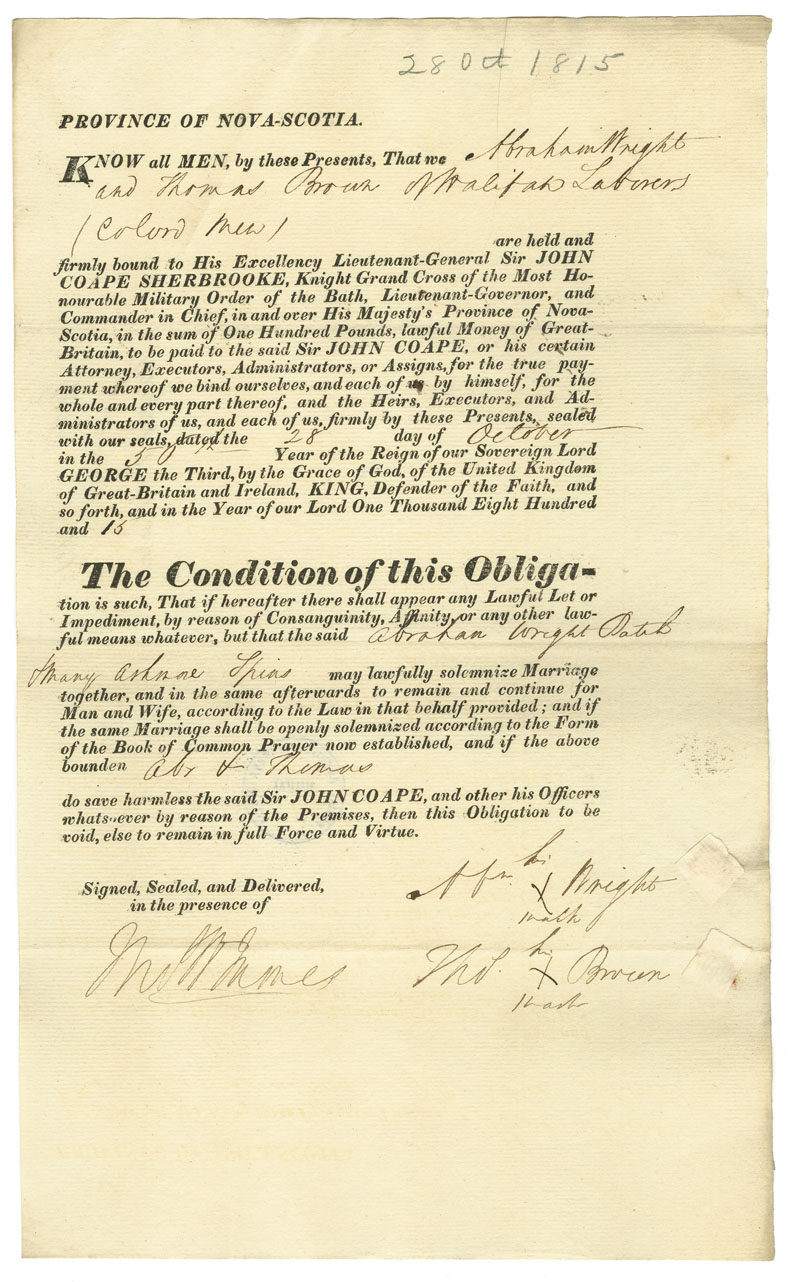 28 Oct 1815
PROVINCE OF NOVA-SCOTIA.
KNOW all MEN, by these Presents, That we Abraham Wright
and Thomas Brown of Halifax Laborers
(Colord Men)
are held and
firmly bound to His Excellency Lieutenant-General Sir JOHN
COAPE SHERBROOKE, Knight Grand Cross of the Most Ho-
nourable Military Order of the Bath, Lieutenant-Governor, and
Commander in Chief, in and over His Majesty's Province of Nova-
Scotia, in the sum of One Hundred Pounds, lawful Money of Great-
Britain, to be paid to the said Sir JOHN COAPE, or his certain
Attorney, Executors, Administrators, or Assigns, for the true pay-
ment whereof we bind ourselves, and each of us by himself, for the
whole and every part thereof, and the Heirs, Executors, and Ad-
ministrators of us, and each of us, firmly by these Presents, sealed
with our seals, dated the 28 day of October
in the Year of the Reign of our Sovereign Lord
GEORGE the Third, by the Grace of God, of the United Kingdom
of Great-Britain and Ireland, KING, Defender of the Faith, and
so forth, and in the Year of our Lord One Thousand Eight Hundred
and 15
The Condition of this Obliga-
tion is such, That if hereafter there shall appear any Lawful Let or
Impediment, by reason of Consanguinity, Affinity, or any other law-
ful means whatever, but that the said Abraham Wright Batch
& Mary Ashmore Spins may lawfully solemnize Marriage
together, and in the same afterwards to remain and continue for
Man and Wife, according to the Law in that behalf provided; and if
the same Marriage shall be openly solemnized according to the Form
of the Book of Common Prayer now established, and if the above
bounden Abr & Thomas
do save harmless the said Sir JOHN COAPE, and other his Officers
whatsoever by reason of the Premises, then this Obligation to be
void, else to remain in full Force and Virtue.
Signed, Sealed, and Delivered,
in the presence of
Abm his X mark Wright
Thos. his X mark Brown